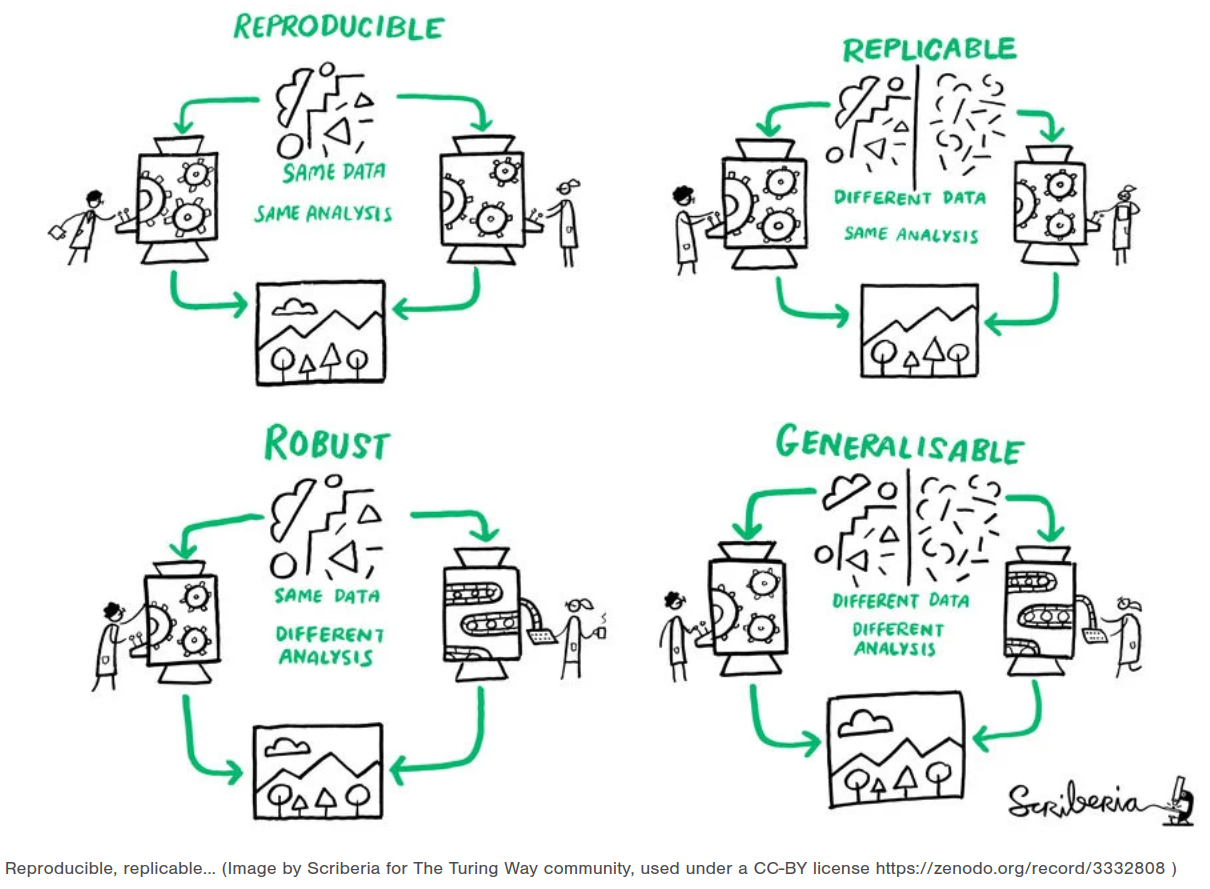 REPRODUCIBLE
SAME DATA
SAME ANALYSIS
REPLICABLE
DIFFERENT DATA
SAME ANALYSIS
ROBUST
SAME DATA
DIFFERENT
ANALYSIS
GENERALISABLE
DIFFERENT DATA
DIFFERENT
ANALYSIS
Scriberia
Reproducible, replicable... (Image by Scriberia for The Turing Way community, used under a CC-BY license https://zenodo.org/record/3332808 )